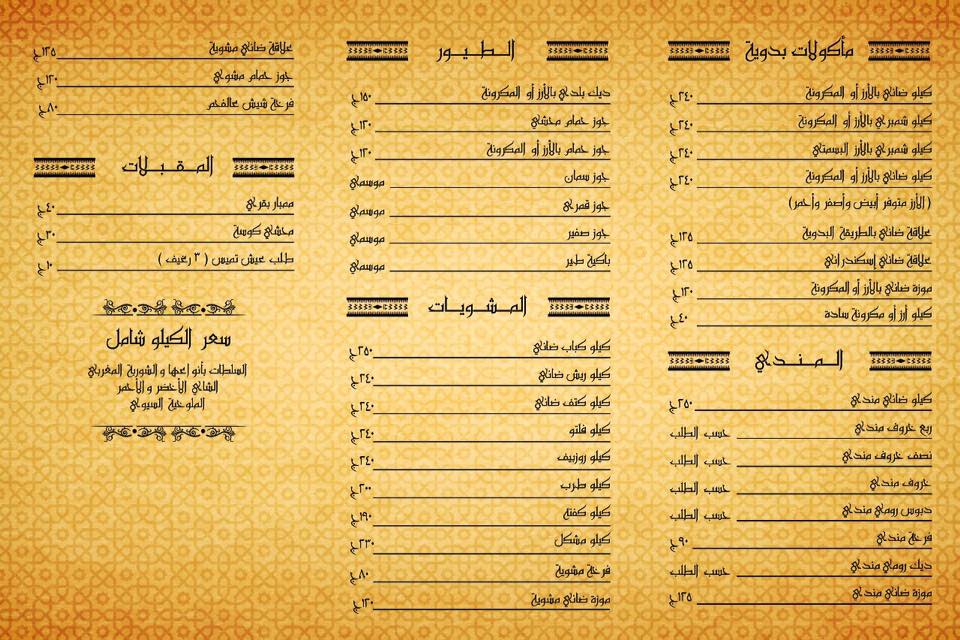 مأكولات بدوية
كيلو ضاني بالأرز أو المكرونة ٢٤٠ج
كيلو شمبري بالأرز أو المكرونة ٢٤٠ج
كيلو شمبري بالأرز البسمتي ٢٤٠ج
كيلو ضاني بالأرز أو المكرونة ٢٤٠ج
(الأرز متوفر أبيض وأصفر وأحمر)
علاقة ضاني بالطريقة البدوية ١٢٥ج
علاقة ضاني إسكندراني ١٢٥ج
موزة ضاني بالأرز أو المكرونة ١٣٠ج
كيلو أرز أو مكرونة سادة ٤٠ج
المندي
كيلو ضاني مندي ٢٥٠ج
ربع خروف مندي حسب الطلب
نصف خروف مندي حسب الطلب
خروف مندي حسب الطلب
دبوس رومي مندي حسب الطلب
فرخة مندي ٩٠ج
ديك رومي مندي حسب الطلب
موزة ضاني مندي ١٢٥ج
الطيور
ديك بلدي بالأرز أو المكرونة ١٥٠ج
جوز حمام محشي ١٢٠ج
جوز حمام بالأرز أو المكرونة ١٢٠ج
جوز سمان موسمي
جوز قمري موسمي
جوز صفير موسمي
باكية طير موسمي
المشويات
كيلو كباب ضاني ٢٥٠ج
كيلو ريش ضاني ٢٤٠ج
كيلو كتف ضاني ٢٤٠ج
كيلو فلتو ٢٤٠ج
كيلو روزبيف ٢٤٠ج
كيلو طرب ٢٠٠ج
كيلو كفتة ١٩٠ج
كيلو مشكل ٢٣٠ج
فرخة مشوية ٨٠ج
موزة ضاني مشوية ١٢٠ج
علاقة ضاني مشوية ١٢٥ج
جوز حمام مشوي ١٢٠ج
فرخة شيش عالفحم ٨٠ج
المقبلات
ممبار بقري ٤٠ج
محشي كوسة ٣٠ج
طلب عيش تميس ( ٣ رغيف ) ١٠ج
سعر الكيلو شامل
السلطات بأنواعها و الشوربة المغربي
الشاي الأخضر و الأحمر
الملوخية السيوي